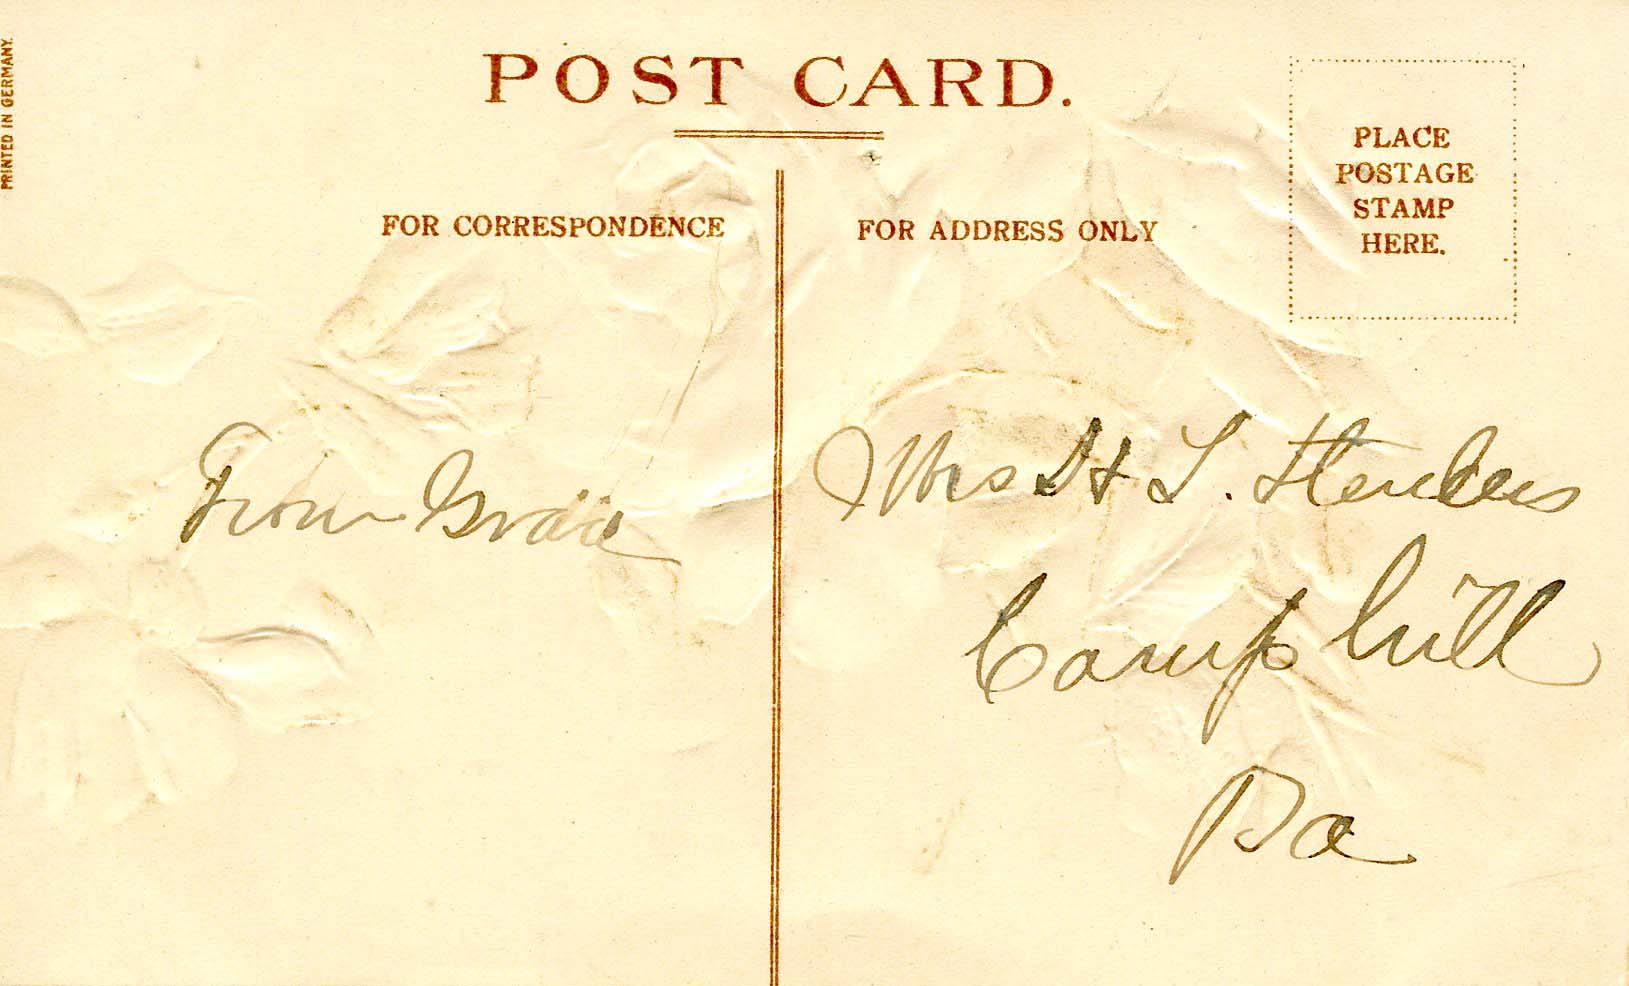 PRINTED IN GERMANY.
POST CARD.
PLACE
POSTAGE
STAMP
HERE.
FOR CORRESPONDENCE
FOR ADDRESS ONLY
From
Mrs H L.
Camp hill
Pa